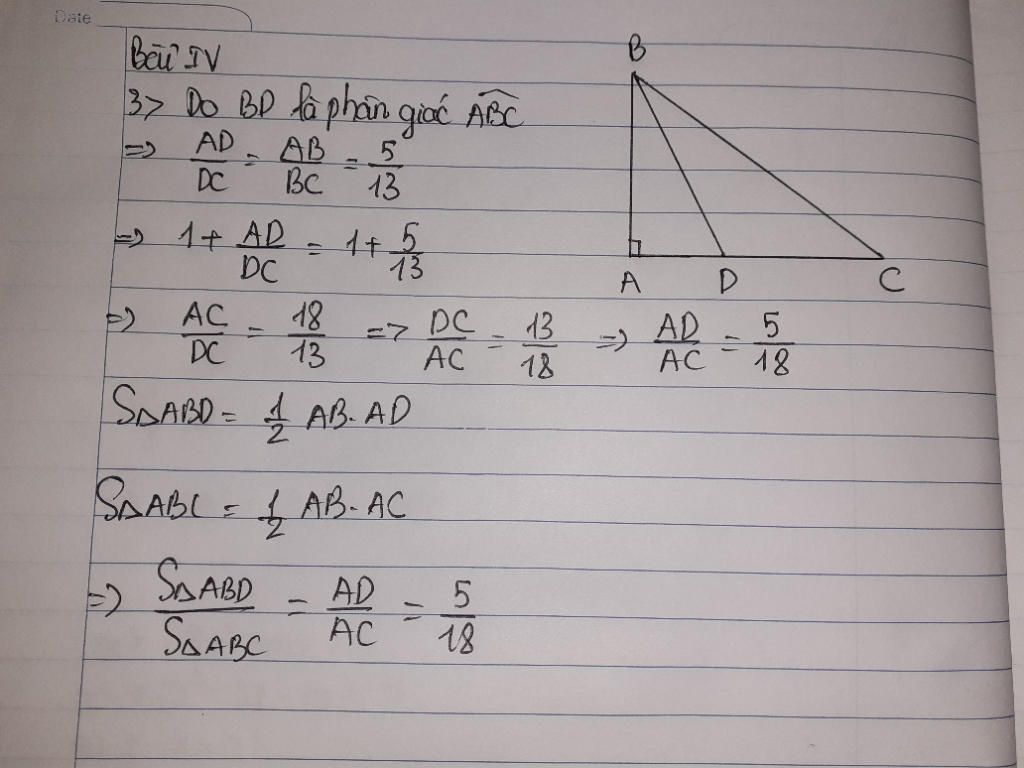 Date
Bài IV
3> Do BD là phân giác ABC
=> AD/DC = AB/BC = 5/13
=> 1 + AD/DC = 1 + 5/13
=> AC/DC = 18/13 => DC/AC = 13/18 => AD/AC = 5/18
S△ABD = 1/2 AB. AD
S△ABC = 1/2 AB. AC
=> S△ABD/S△ABC = AD/AC = 5/18
B
A D C